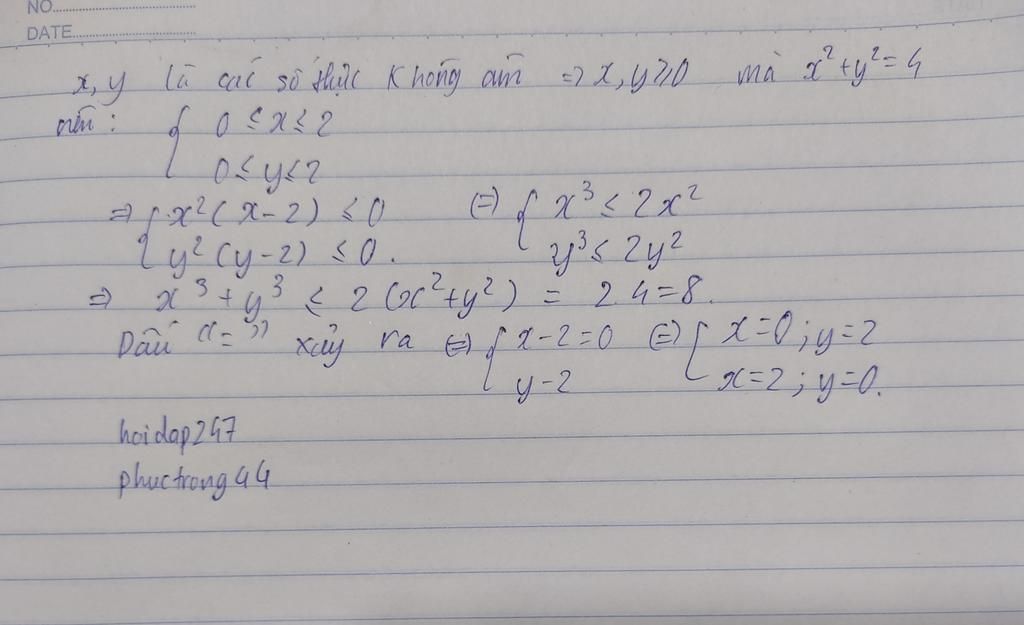 NO.
DATE
x, y là các số thực không âm => x, y ≥ 0 mà x² + y² = 4
nên: { 0 ≤ x ≤ 2
0 ≤ y ≤ 2
=> { x²(x - 2) ≤ 0 (=) { x³ ≤ 2x²
y²(y - 2) ≤ 0. y³ ≤ 2y²
=> x³ + y³ ≤ 2(x² + y²) = 2.4 = 8.
Dấu "=" xảy ra (=) { x - 2 = 0 (=) { x = 0; y = 2
y - 2 x = 2; y = 0.
hoidap247
phuctrong44